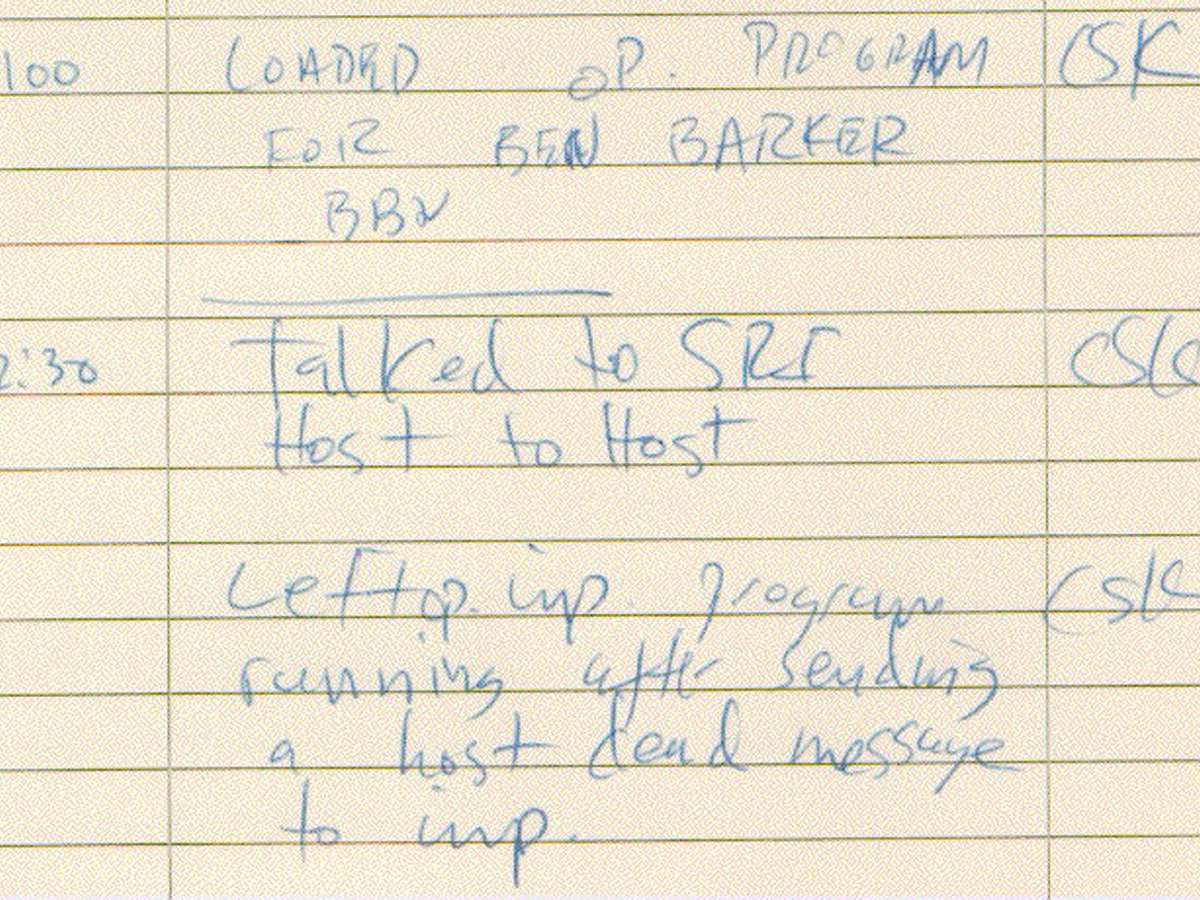 100 LOADED OP. PROGRAM CSK
FOR BEN BARKER
BBN
2:30 Talked to SRI CSK
Host to Host
Left op. imp. program CSK
running after sending
a host dead message
to imp.